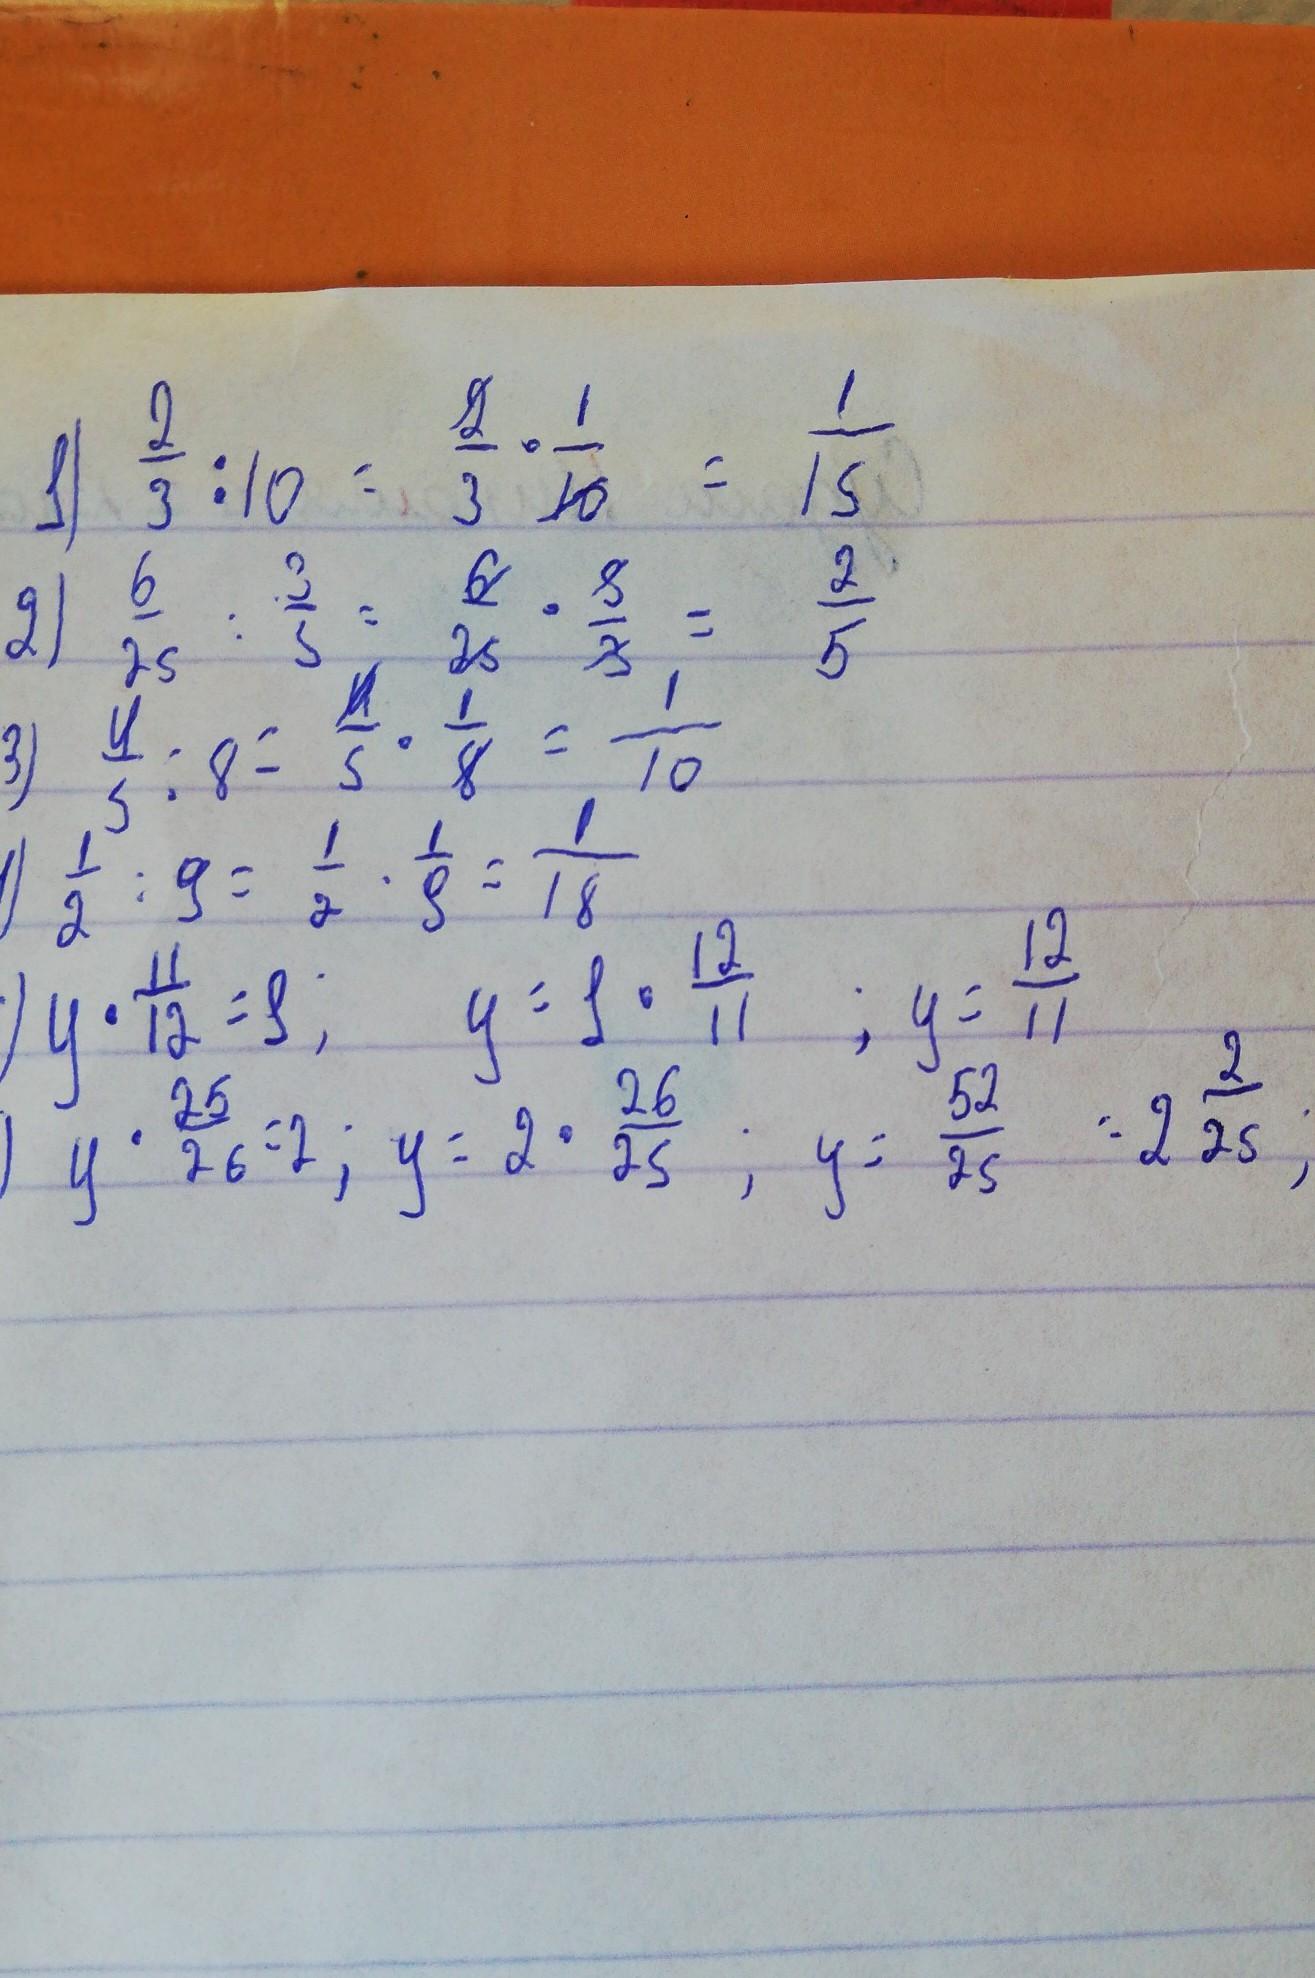 1) 2/3 : 10 = 2/3 · 1/10 = 1/15
2) 6/25 : 3/5 = 6/25 · 5/3 = 2/5
3) 4/5 : 8 = 4/5 · 1/8 = 1/10
) 1/2 : 9 = 1/2 · 1/9 = 1/18
) y · 11/12 = 1; y = 1 · 12/11 ; y = 12/11
) y · 25/26 = 2; y = 2 · 26/25 ; y = 52/25 = 2 2/25;